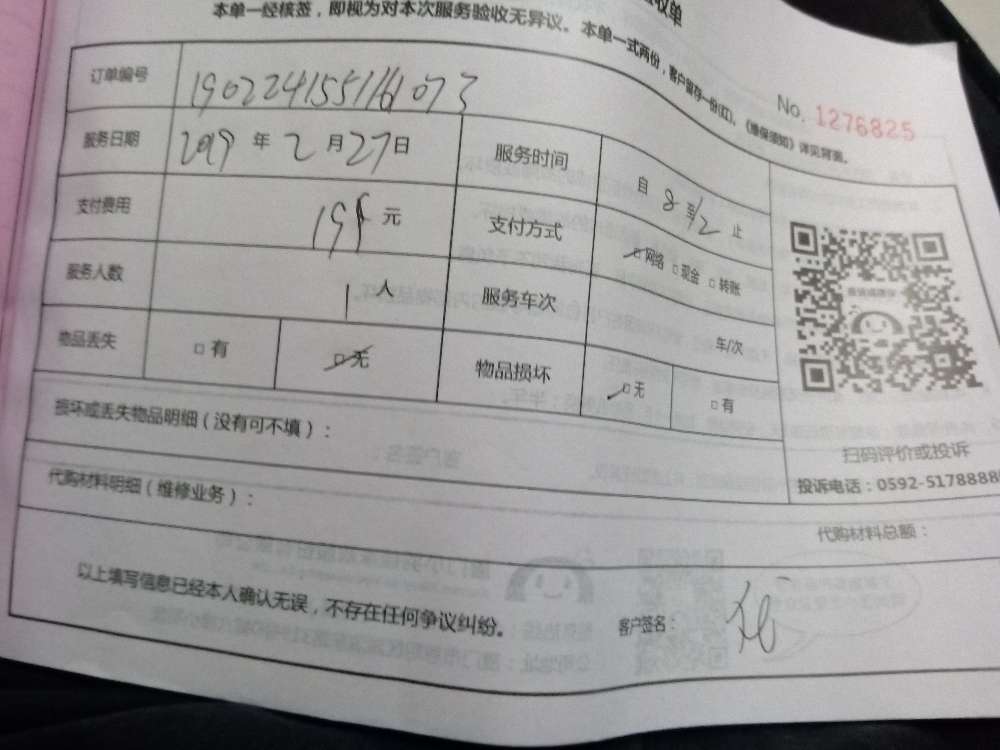 收单
本单一经核签，即视为对本次服务验收无异议。本单一式两份，客户留存一份(红)，《维保须知》详见背面。
No. 1276825
订单编号 190224155161073
服务日期 2019 年 2 月 27 日 服务时间 自 8 到 12 止
支付费用 元 支付方式 □ 网络 □ 现金 □ 转账
服务人数 1 人 服务车次 车/次
物品丢失 □ 有 □ 无 物品损坏 □ 无 □ 有
扫码评价或投诉
投诉电话：0592-5178888
损坏或丢失物品明细（没有可不填）：
代购材料明细（维修业务）：
代购材料总额：
以上填写信息已经本人确认无误，不存在任何争议纠纷。 客户签名：